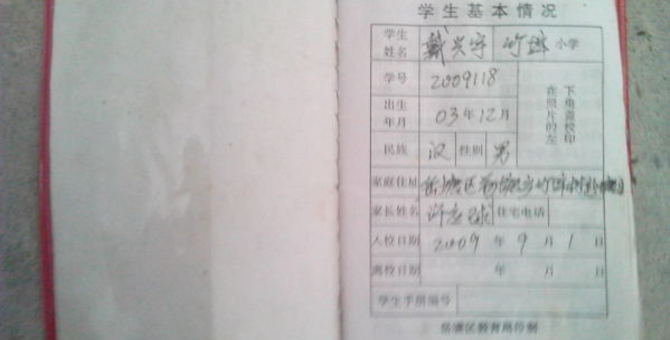 学生基本情况
学生姓名 戴兴宇 竹 小学
学号 2009118
在照片的左下角盖校印
出生年月 03年12月
民族 汉 性别 男
家庭住址 区
家长姓名 许应球 住宅电话
入校日期 2009年9月1日
离校日期 年 月 日
学生手册编号
岳塘区教育局印制